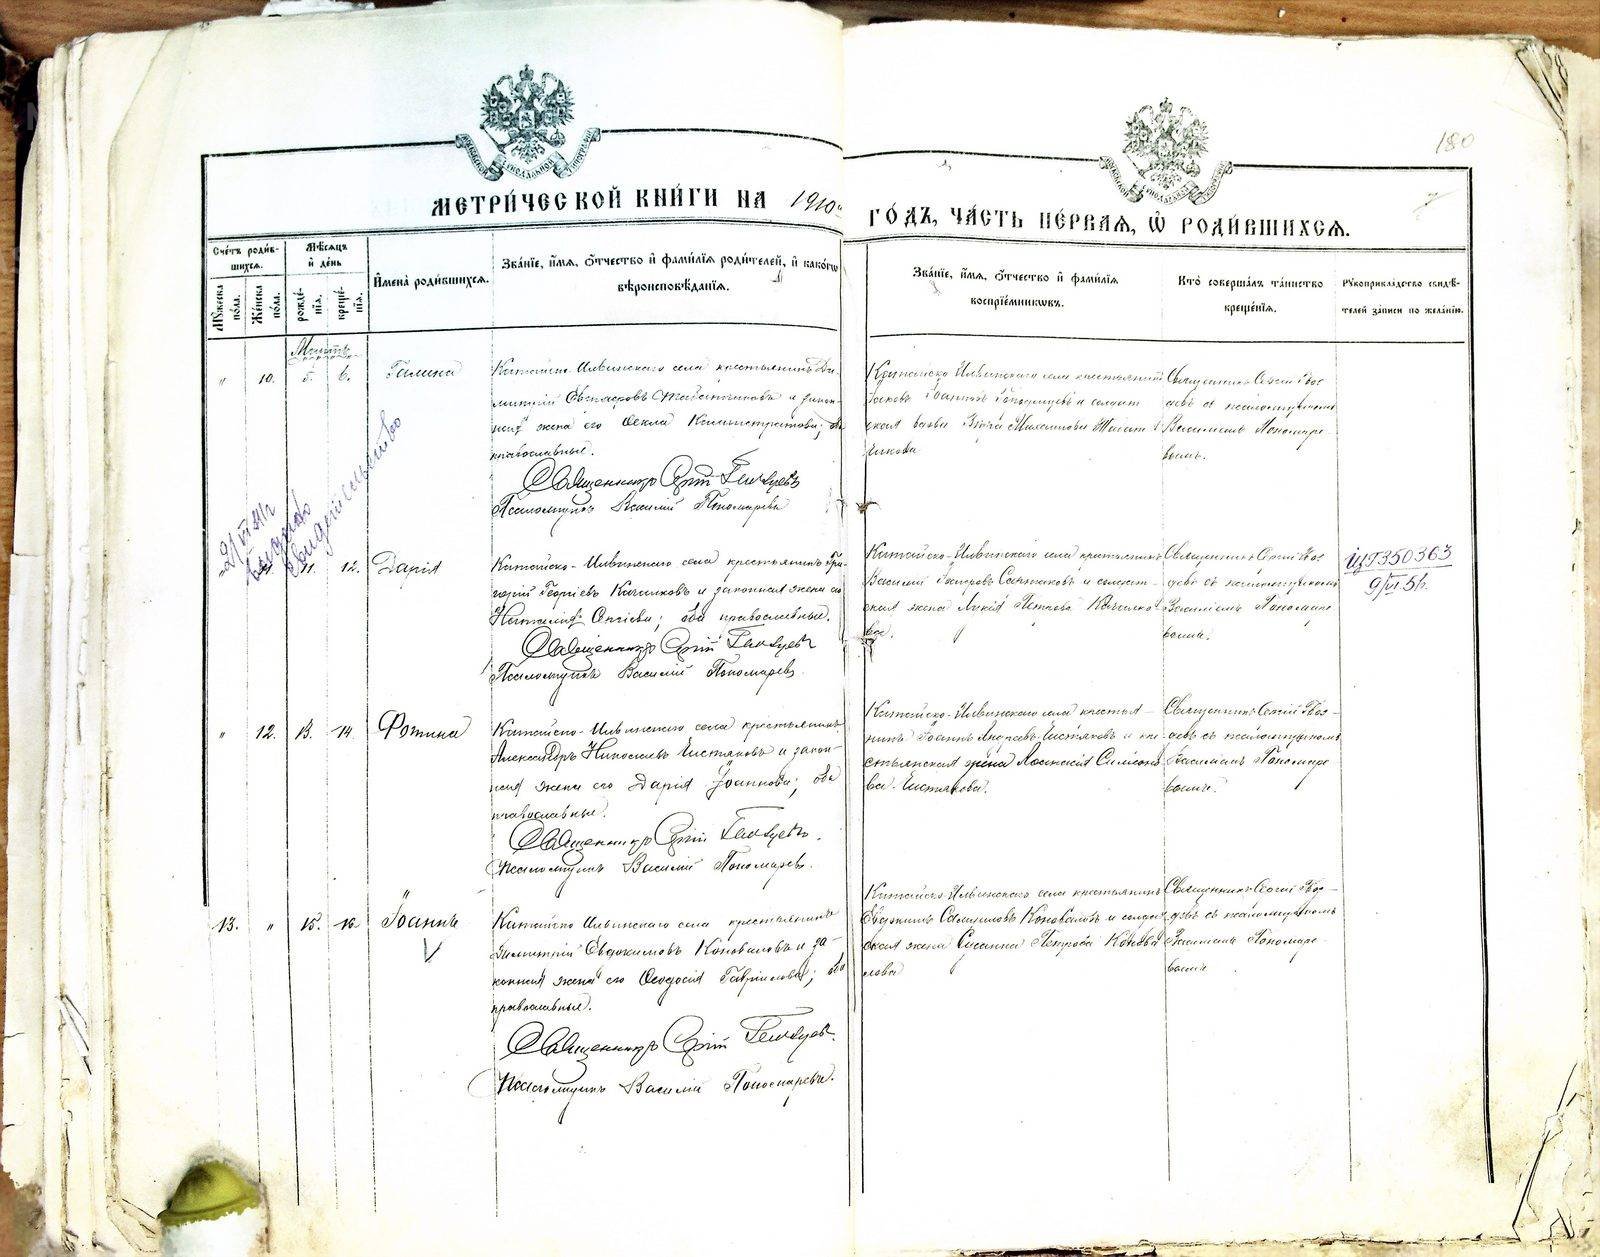 180
МЕТРИ́ЧЕСКОЙ КНИ́ГИ НА 1910й ГО́ДЪ, ЧА́СТЬ ПЕ́РВАЯ, Ѡ РОДИ́ВШИХСЯ.
7
Сче́тъ роди́в-
шихся.
Му́жеска
по́ла.
Же́нска
по́ла.
Мѣ́сяцъ
и҆ де́нь
рожде́-
нїя.
креще́-
нїя.
И҆мена̀ роди́вшихся.
Зва́нїе, и҆́мя, ѻ҆́тчество и҆ фами́лїя роди́телей, и҆ како́гѡ
вѣроисповѣ́данїя.
Зва́нїе, и҆́мя, ѻ҆́тчество и҆ фами́лїя
воспрїе́мникѡвъ.
Кто̀ соверша́лъ та́инство
креще́нїя.
Рꙋкоприкла́дство свидѣ́-
телей за́писи по жела́нїю.
Мартъ
" 10. 5. 6. Галина
Китайско-Ильвинскаго села крестьянинъ Ди-
митрій и закон-
ная жена его Ѳекла Каллистратова; оба
православные.
Священникъ Сергій Гвоздевъ
Псаломщикъ Василій Пономаревъ
Китайско-Ильвинскаго села крестьянинъ
Іаковъ Іоанновъ и солдат-
ская вдова Михаилова
Священникъ Сергій Гвоз-
девъ съ псаломщикомъ
Василіемъ Пономаре-
вымъ.
21/VI 41г
выдано
свидетельство
11. 12. Дарія
Китайско-Ильвинскаго села крестьянинъ Гри-
горій Георгіевъ Качалковъ и законная жена его
Наталія Сергіева; оба православные.
Священникъ Сергій Гвоздевъ
Псаломщикъ Василій Пономаревъ
Китайско-Ильвинскаго села крестьянинъ
Василій и солдат-
ская жена Лукія Петрова Качалко-
ва.
Священникъ Сергій Гвоз-
девъ съ псаломщикомъ
Василіемъ Пономаре-
вымъ.
350363
9/VI 51г.
" 12. 13. 14. Фотина
Китайско-Ильвинскаго села крестьянинъ
Александръ Николаевъ Чистяковъ и закон-
ная жена его Дарія Іоаннова; оба
православные.
Священникъ Сергій Гвоздевъ.
Псаломщикъ Василій Пономаревъ.
Китайско-Ильвинскаго села крестья-
нинъ Іоаннъ Андреевъ Чистяковъ и кре-
стьянская жена Аѳанасія Симеоно-
ва Чистякова.
Священникъ Сергій Гвоз-
девъ съ псаломщикомъ
Василіемъ Пономаре-
вымъ.
13. " 15. 16. Іоаннъ
Китайско-Ильвинскаго села крестьянинъ
Димитрій Евдокимовъ Коноваловъ и за-
конная жена его Ѳеодосія Гавриилова; оба
православные.
Священникъ Сергій Гвоздевъ.
Псаломщикъ Василій Пономаревъ.
Китайско-Ильвинскаго села крестьянинъ
Евдокимъ Самуиловъ Коноваловъ и солдат-
ская жена Сусанна Петрова Конова-
лова
Священникъ Сергій Гвоз-
девъ съ псаломщикомъ
Василіемъ Пономаре-
вымъ